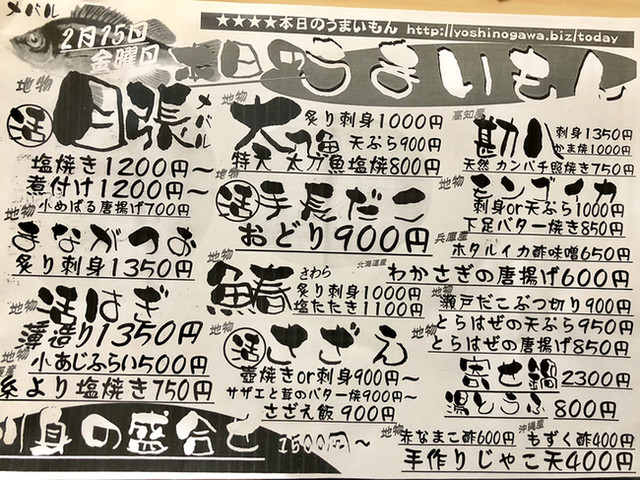 メバル
★★★★本日のうまいもん http://yoshinogawa.biz/today
2月15日
金曜日
本日のうまいもん
地物
活 目張 メバル
塩焼き1200円〜
煮付け1200円〜
地物 小めばる唐揚げ700円
まながつお
炙り刺身1350円
地物
活はぎ
薄造り1350円
地物 小あじふらい500円
糸より塩焼き750円
刺身の盛合せ 1500円〜
地物
太刀魚 炙り刺身1000円
天ぷら900円
特大太刀魚塩焼800円
地物
活 手長だこ
おどり900円
地物
鰆 さわら
炙り刺身1000円
塩たたき1100円
地物
活 さざえ
壺焼きor刺身900円〜
サザエと茸のバター焼900円〜
さざえ飯900円
高知産
勘八 刺身1350円
かま焼1000円
天然カンパチ照焼き750円
地物
モンゴイカ
刺身or天ぷら1000円
下足バター焼き850円
兵庫産
ホタルイカ酢味噌650円
北海道産
わかさぎの唐揚げ600円
地物
瀬戸だこぶつ切り900円
地物 とらはぜの天ぷら950円
とらはぜの唐揚げ850円
寄せ鍋2300円
湯とうふ800円
地物 赤なまこ酢600円
沖縄産 もずく酢400円
手作りじゃこ天400円